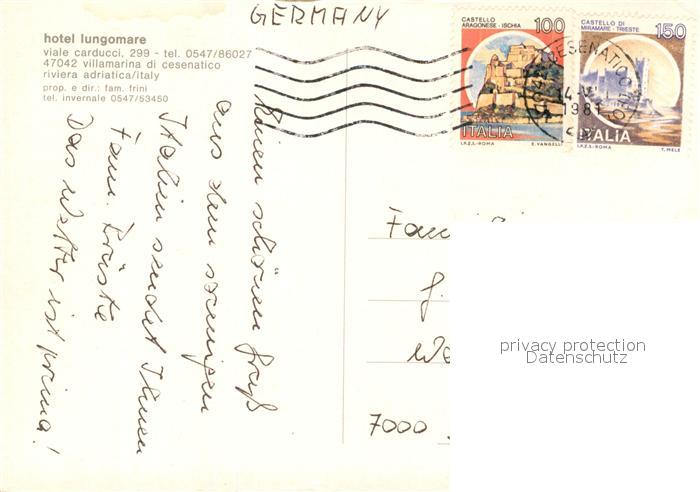 GERMANY
hotel lungomare
viale carducci, 299 - tel. 0547/86027
47042 villamarina di cesenatico
riviera adriatica/italy
prop. e dir.: fam. frini
tel. invernale 0547/53450
CASTELLO
ARAGONESE - ISCHIA
100
ITALIA
I.P.Z.S. - ROMA
E. VANGELLI
CASTELLO DI
MIRAMARE - TRIESTE
150
ITALIA
I.P.Z.S. - ROMA
T. MELE
CESENATICO
14
1981
Einen schönen Gruß
aus dem sonnigen
Italien sendet Ihnen
Fam.
Das Wetter ist prima!
Fam
J.
We
7000
privacy protection
Datenschutz